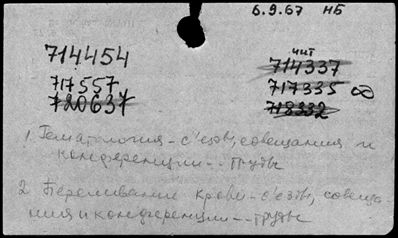 6.9.67 НБ
714454
чит
714337
717557
717335
720637
718332
1. Гематология - с'езды, совещания и
конференции -- труды
2. Переливание крови - с'езды, совеща-
ния и конференции -- труды